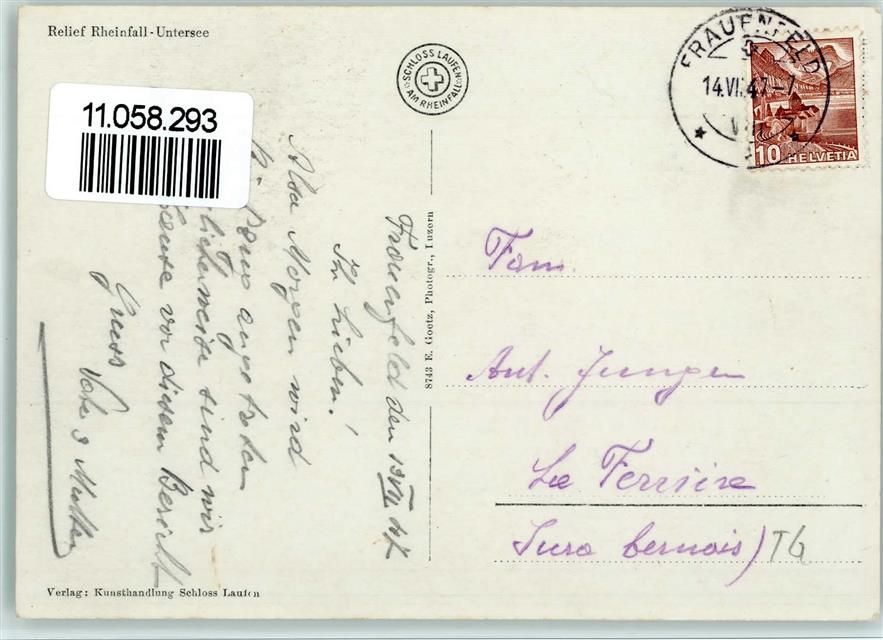 Relief Rheinfall-Untersee
11.058.293
SCHLOSS LAUFEN
AM RHEINFALL
FRAUENFELD
14.VI.47-7
10 HELVETIA
Frauenfeld den 13 VI 47
Ihr Lieben!
Also Morgen wird
angetreten
sind wir
vor diesem Bericht
Gruss
Vater & Mutter
8743 E. Goetz, Photogr., Luzern
Fam.
Ant. Jungen
La Ferrière
Jura bernois) TG
Verlag: Kunsthandlung Schloss Laufen